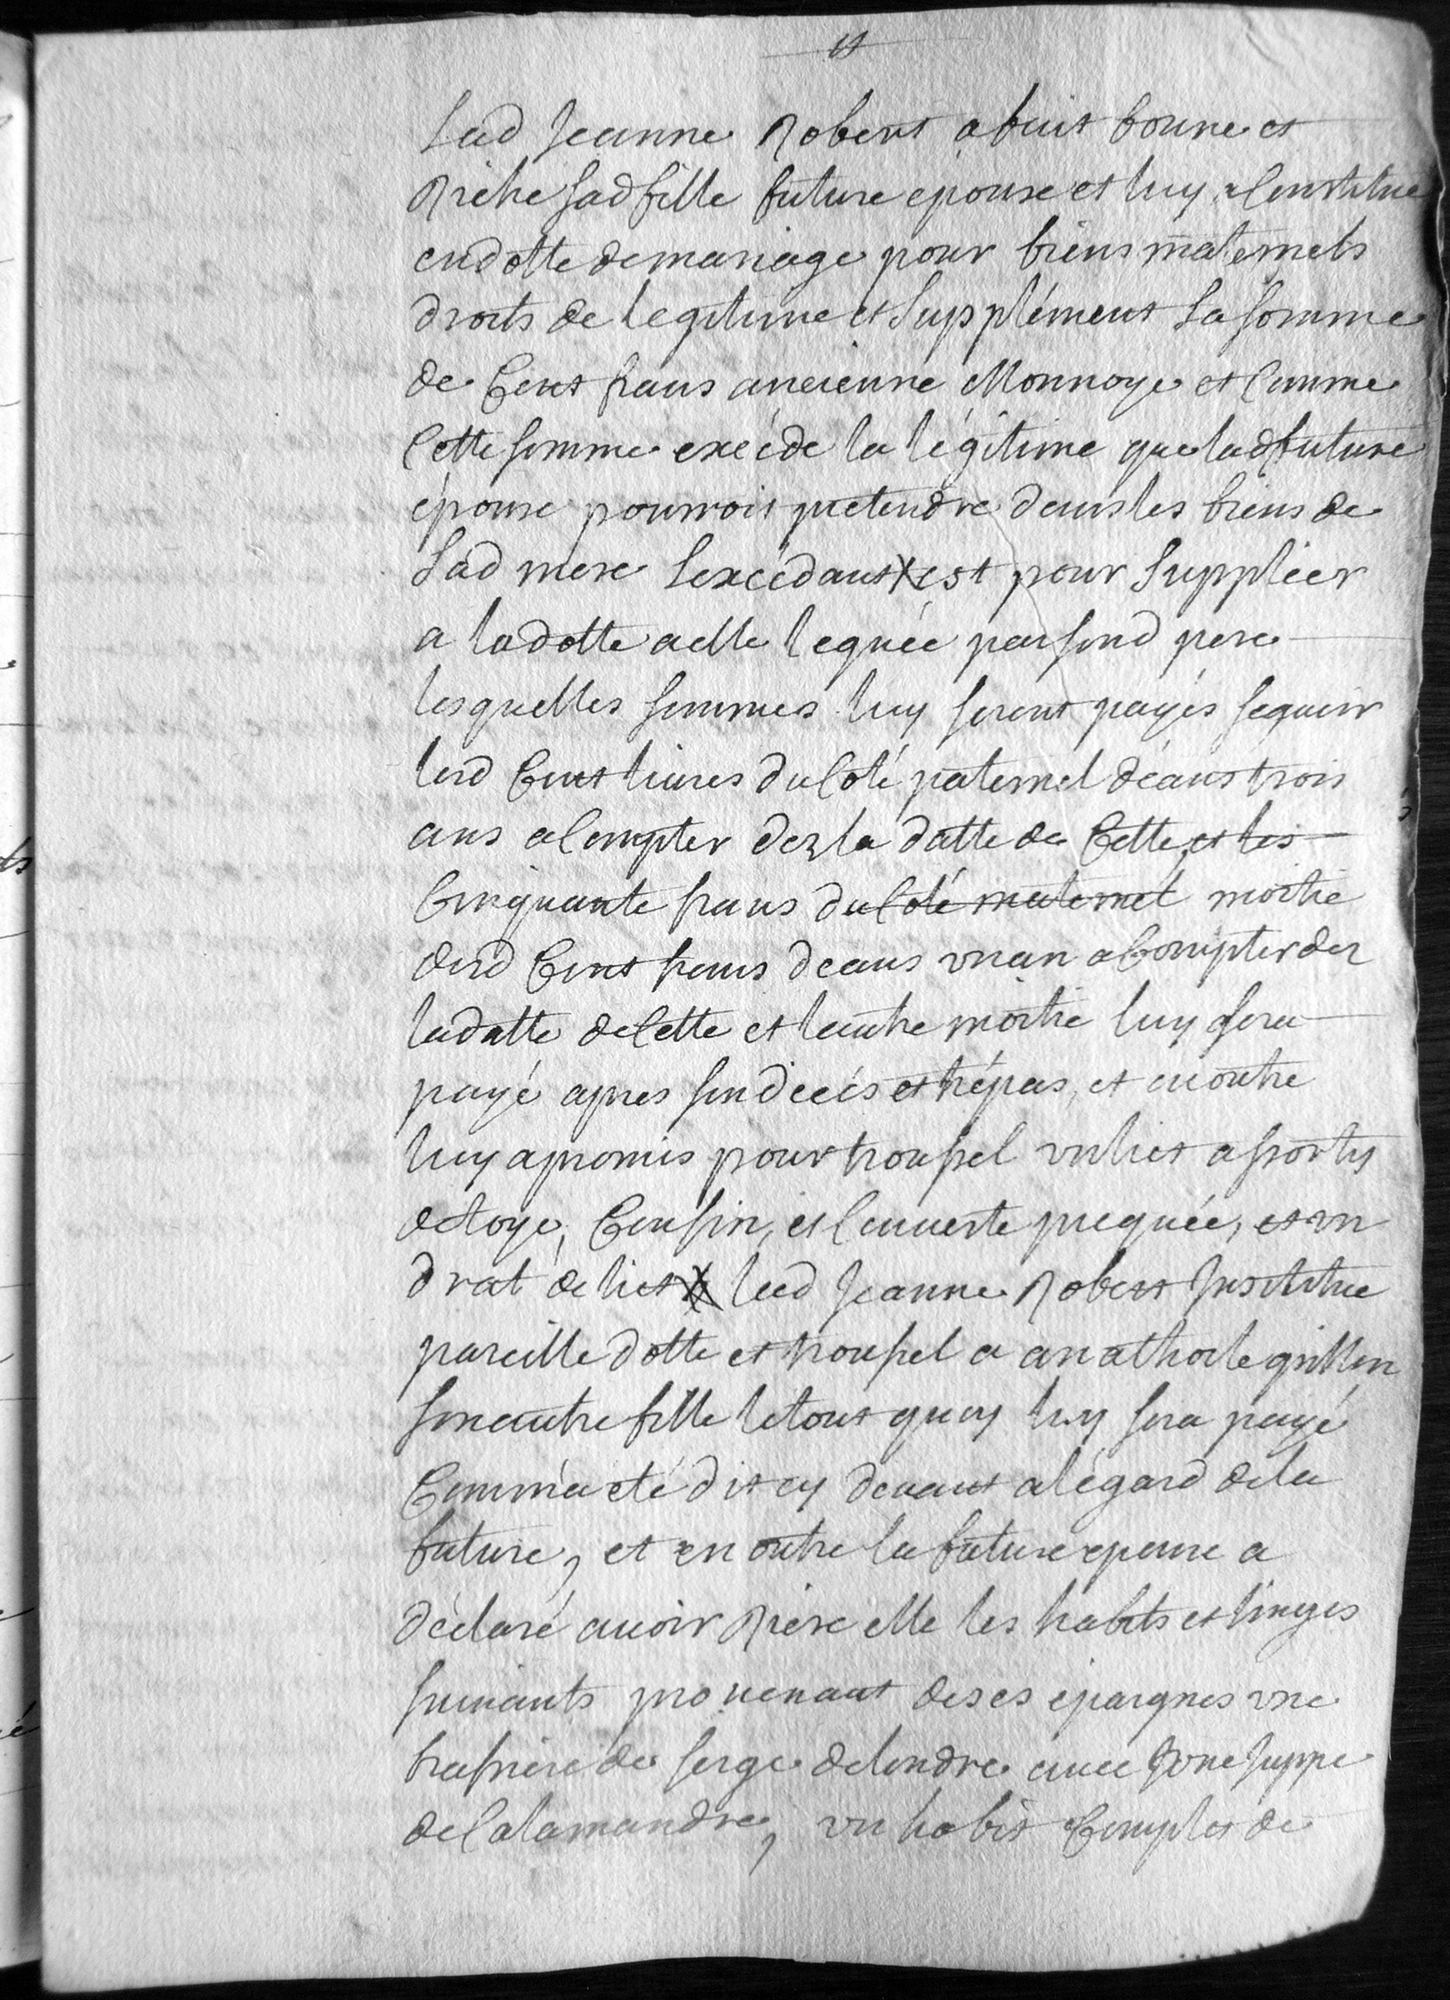 et
Lad Jeanne Robert a fait bonne et
Riche sad fille future epouse et luy a Constitue
en dotte de mariage pour biens maternels
droits de legitime et supplément La somme
de Cent frans ancienne Monnoye et Comme
Cette somme excéde la légitime que lad future
épouse pourroit pretendre dans les biens de
Sad mere Lexcedant est pour Suppléer
a la dotte a elle leguée par sond pere
lesquelles sommes luy seront payés sçavoir
lesd Cent livres du Coté paternel dans trois
ans a Compter dez la datte de Cette, et les
Cinquante frans du Coté maternel moitie
desd Cent frans dans un an a Compter dez
la datte de Cette et lautre moitié luy sera
payé apres son decés et trépas, et en outre
luy a promis pour trousel un lict assortis
de toye, Coussin, et Couverte piequée, et un
drat de lict lad Jeanne Robert Institue
pareille dotte et trousel a anathoile grillon
son autre fille le tout quoy luy sera payé
Comm'a eté dit cy devant a légard de la
future, et en outre la future epouse a
déclaré avoir Riere elle les habits et linges
suivants provenant de ses épargnes une
de serge de londre avec une juppe
de Calamandre, un habit Complet de